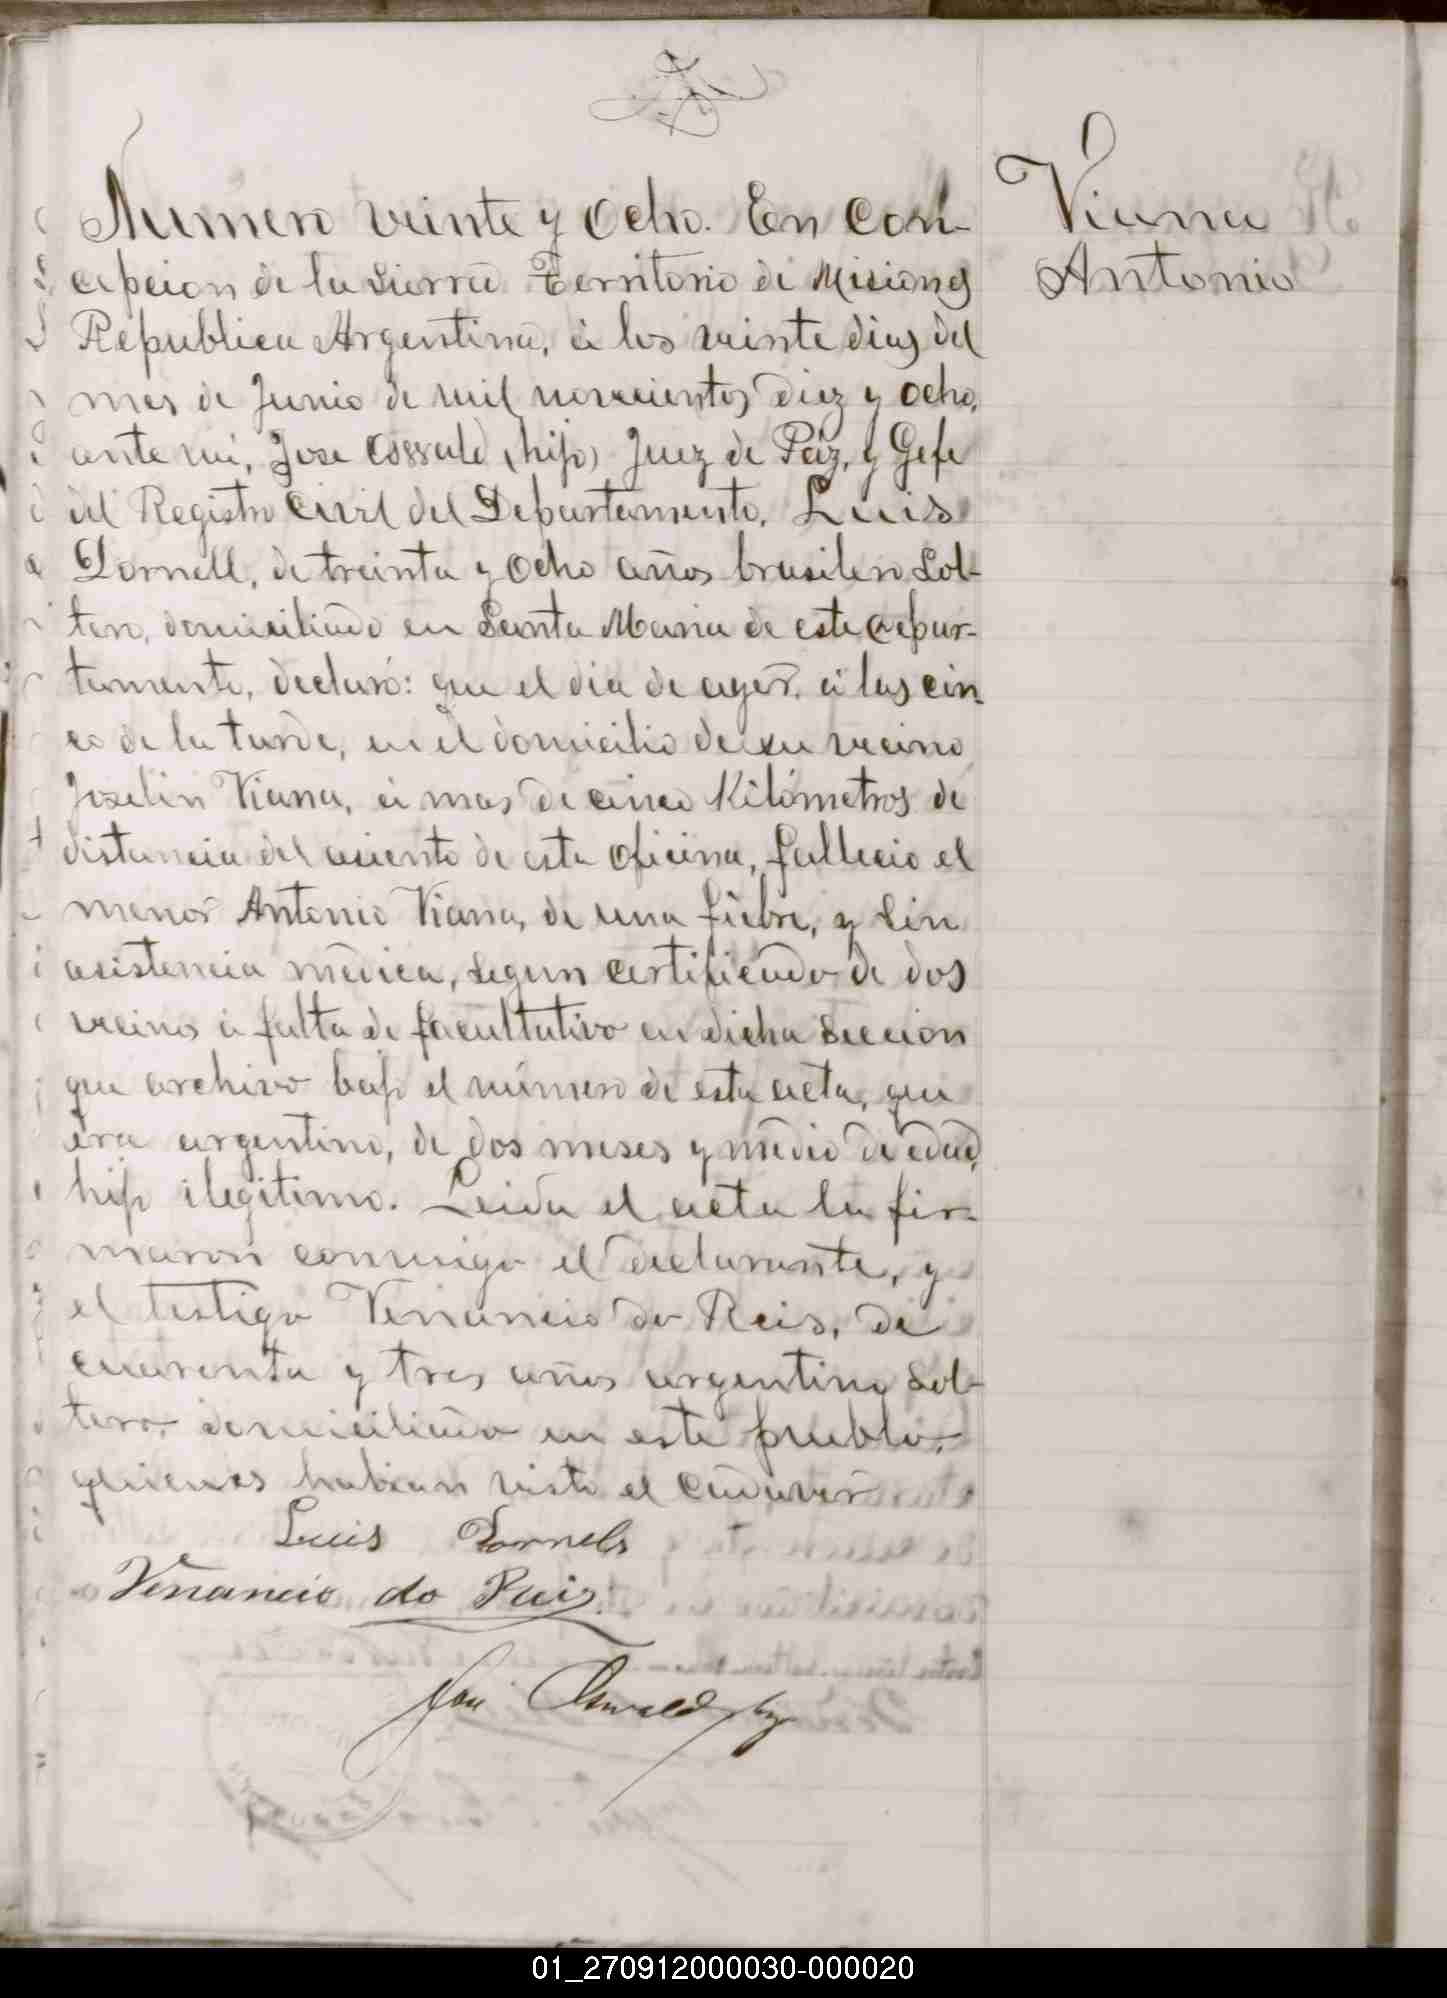 Viana
Antonio
Numero veinte y ocho. En Con-
cepcion de la Sierra Territorio de Misiones
Republica Argentina, á los veinte dias del
mes de Junio de mil novecientos diez y ocho,
ante mi, Jose Osswald (hijo) Juez de Paz, y Gefe
del Registro Civil del Departamento, Luis
Dornell, de treinta y ocho años brasilero Sol-
tero, domiciliado en Santa Maria de este depar-
tamento, declaró: que el dia de ayer, á las cin-
co de la tarde, en el domicilio de su vecino
Joselin Viana, á mas de cinco Kilómetros de
distancia del asiento de esta oficina, fallecio el
menor Antonio Viana, de una fiebre, y sin
asistencia médica, segun certificado de dos
vecinos á falta de facultativo en dicha Seccion
que archivo bajo el número de esta acta, que
era argentino, de dos meses y medio de edad,
hijo ilegitimo. Leida el acta la fir-
maron conmigo el declarante, y
el testigo Venancio do Reis, de
cuarenta y tres años argentino Sol-
tero, domiciliado en este pueblo,
quienes habian visto el cadaver
Luis Dornels
Venancio do Reis
José Osswald hijo
01_270912000030-000020